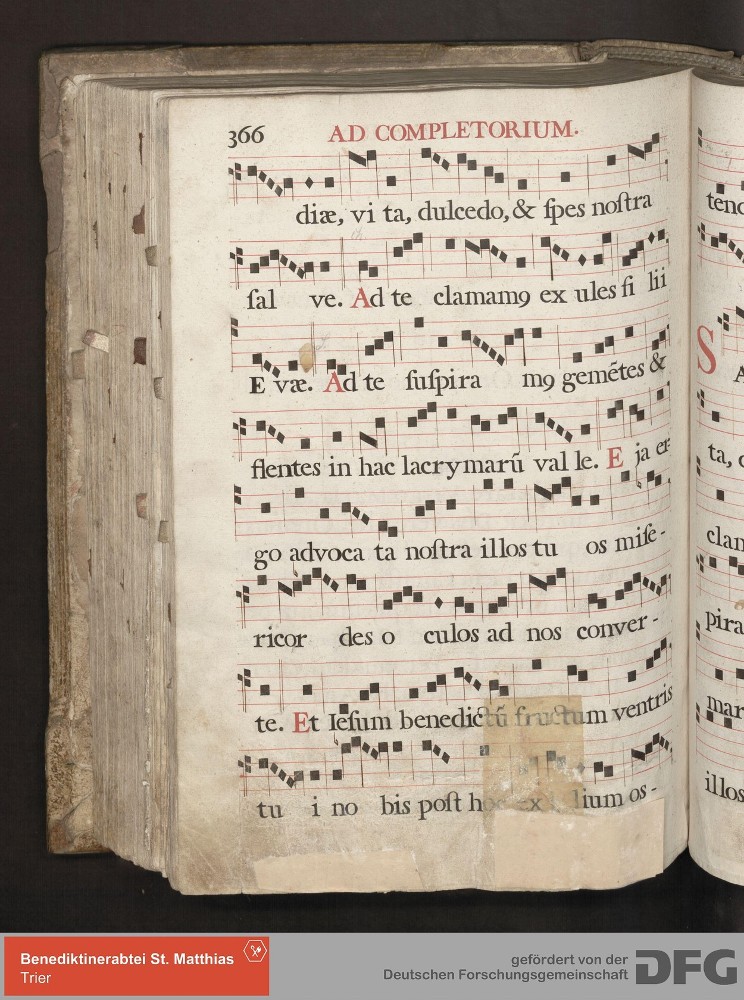 366 AD COMPLETORIUM.
diæ, vi ta, dulcedo, & ſpes noſtra
ſal ve. Ad te clamamꝯ ex ules fi lii
E væ. Ad te ſuſpira mꝯ gemẽtes &
flentes in hac lacrymarũ val le. E ja er-
go advoca ta noſtra illos tu os miſe-
ricor des o culos ad nos conver-
te. Et Ieſum benedictũ fructum ventris
tu i no bis poſt hoc exi lium os-
tenc
S
A
ta,
clam
pira
mar
illos
Benediktinerabtei St. Matthias
Trier
gefördert von der
Deutschen Forschungsgemeinschaft
DFG